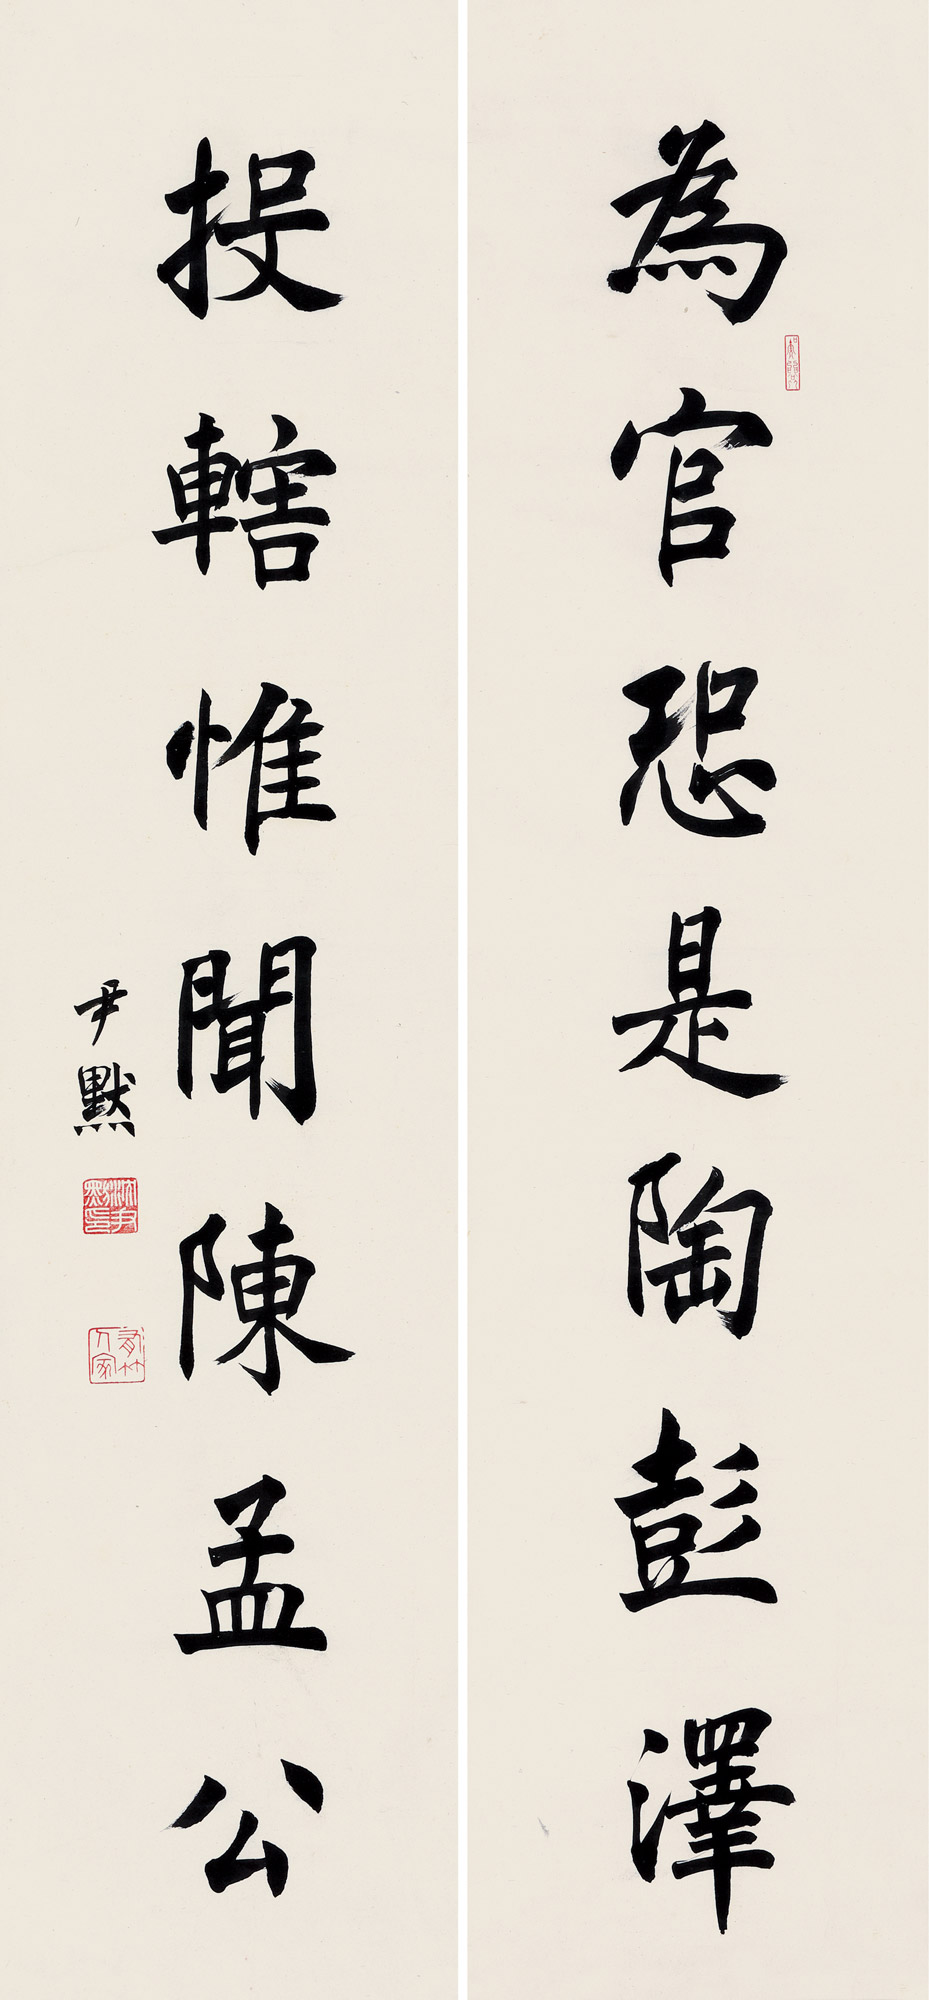 為官恐是陶彭澤
投轄惟聞陳孟公
尹默
沈尹默印